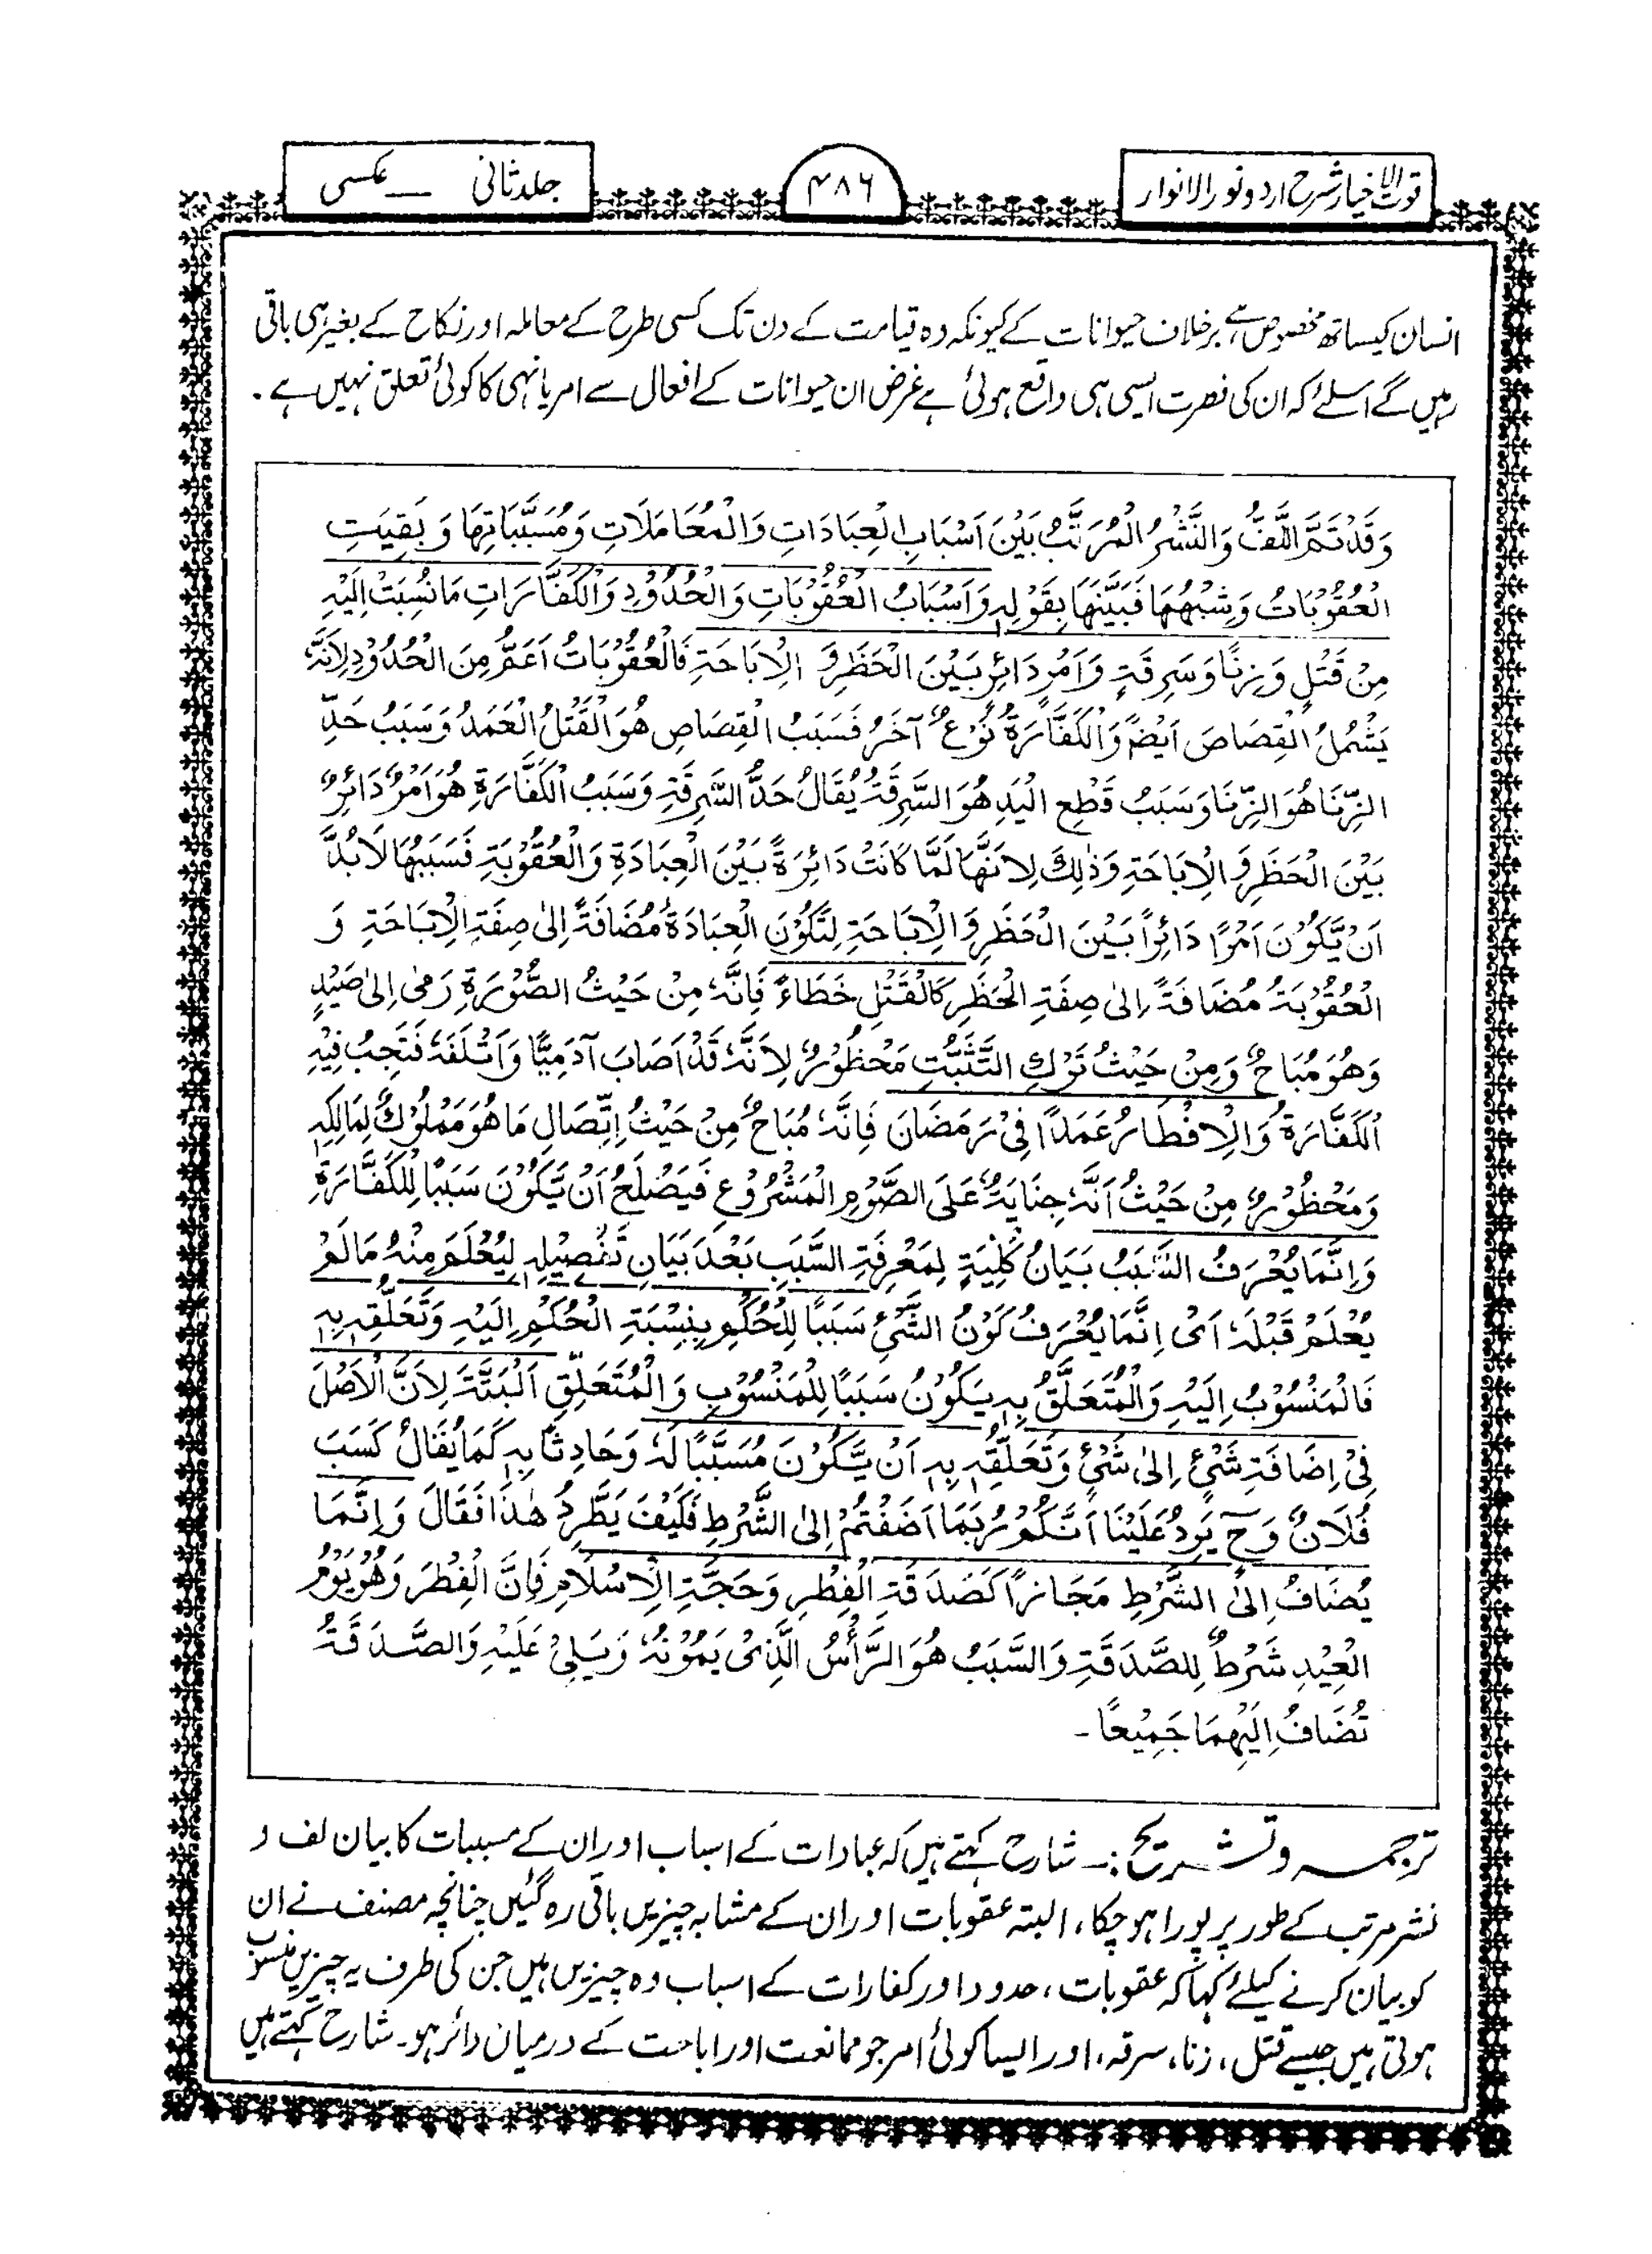 قوت الاخیار شرح اردو نور الانوار
۴۸۶
جلد ثانی ــ عکسی
انسان کیساتھ مخصوص ہے، برخلاف حیوانات کے کیونکہ وہ قیامت کے دن تک کسی طرح کے معاملہ اور نکاح کے بغیر ہی باقی
رہیں گے اسلئے کہ ان کی فطرت ایسی ہی واقع ہوئی ہے غرض ان حیوانات کے افعال سے امر یا نہی کا کوئی تعلق نہیں ہے ۔
وَقَدْ تَمَّ اللَّفُّ وَالنَّشْرُ الْمُرَتَّبُ بَيْنَ اَسْبَابِ الْعِبَادَاتِ وَالْمُعَامَلَاتِ وَمُسَبَّبَاتِهَا وَبَقِيَتِ
الْعُقُوْبَاتُ وَشِبْهُهَا فَبَيَّنَهَا بِقَوْلِهٖ وَاَسْبَابُ الْعُقُوْبَاتِ وَالْحُدُوْدِ وَالْكَفَّارَاتِ مَا نُسِبَتْ اِلَيْهِ
مِنْ قَتْلٍ وَزِنًا وَسَرِقَةٍ وَاَمْرٍ دَائِرٍ بَيْنَ الْحَظَرِ وَ الْاِبَاحَةِ فَالْعُقُوْبَاتُ اَعَمُّ مِنَ الْحُدُوْدِ لِاَنَّهٗ
يَشْمُلُ الْقِصَاصَ اَيْضًا وَالْكَفَّارَةُ نَوْعٌ آخَرُ فَسَبَبُ الْقِصَاصِ هُوَ الْقَتْلُ الْعَمَدُ وَسَبَبُ حَدِّ
الزِّنَا هُوَ الزِّنَا وَسَبَبُ قَطْعِ الْيَدِ هُوَ السَّرِقَةُ يُقَالُ حَدُّ السَّرِقَةِ وَسَبَبُ الْكَفَّارَةِ هُوَ اَمْرٌ دَائِرٌ
بَيْنَ الْحَظَرِ وَ الْاِبَاحَةِ وَذٰلِكَ لِاَنَّهَا لَمَّا كَانَتْ دَائِرَةً بَيْنَ الْعِبَادَةِ وَالْعُقُوْبَةِ فَسَبَبُهَا لَابُدَّ
اَنْ يَّكُوْنَ اَمْرًا دَائِرًا بَيْنَ الْحَظَرِ وَالْاِبَاحَةِ لِتَكُوْنَ الْعِبَادَةُ مُضَافَةً اِلٰى صِفَةِ الْاِبَاحَةِ وَ
الْعُقُوْبَةُ مُضَافَةً اِلٰى صِفَةِ الْحَظَرِ كَالْقَتْلِ خَطَاءً فَاِنَّهٗ مِنْ حَيْثُ الصُّوْرَةِ رَمٰى اِلٰى صَيْدٍ
وَهُوَ مُبَاحٌ وَمِنْ حَيْثُ تَرْكِ التَّثَبُّتِ مَحْظُوْرٌ لِاَنَّهٗ قَدْ اَصَابَ آدَمِيًّا وَاَتْلَفَهٗ فَتَجِبُ فِيْهِ
الْكَفَّارَةُ وَالْاِفْطَارُ عَمَدًا فِىْ رَمَضَانَ فَاِنَّهٗ مُبَاحٌ مِنْ حَيْثُ اِتِّصَالِ مَا هُوَ مَمْلُوْكٌ لِمَالِكِهٖ
وَمَحْظُوْرٌ مِنْ حَيْثُ اَنَّهٗ جِنَايَةٌ عَلَى الصَّوْمِ الْمَشْرُوْعِ فَيَصْلَحُ اَنْ يَّكُوْنَ سَبَبًا لِلْكَفَّارَةِ
وَاِنَّمَا يُعْرَفُ السَّبَبُ بَيَانُ كُلِّيَةٍ لِمَعْرِفَةِ السَّبَبِ بَعْدَ بَيَانِ تَفْصِيْلِهٖ لِيُعْلَمَ مِنْهُ مَا لَمْ
يُعْلَمْ قَبْلَهٗ اَىْ اِنَّمَا يُعْرَفُ كَوْنُ الشَّىْئِ سَبَبًا لِلْحُكْمِ بِنِسْبَةِ الْحُكْمِ اِلَيْهِ وَتَعَلُّقِهٖ بِهٖ
فَالْمَنْسُوْبُ اِلَيْهِ وَالْمُتَعَلَّقُ بِهٖ يَكُوْنُ سَبَبًا لِلْمَنْسُوْبِ وَالْمُتَعَلِّقِ اَلْبَتَّةَ لِاَنَّ الْاَصْلَ
فِىْ اِضَافَةِ شَىْئٍ اِلٰى شَىْئٍ وَتَعَلُّقِهٖ بِهٖ اَنْ يَّكُوْنَ مُسَبَّبًا لَهٗ وَحَادِثًا بِهٖ كَمَا يُقَالُ كَسَبَ
فُلَانٌ وَحٓ يَرِدُ عَلَيْنَا اَنَّكُمْ رُبَمَا اَضَفْتُمْ اِلَى الشَّرْطِ فَكَيْفَ يَطَّرِدُ هٰذَا فَقَالَ وَاِنَّمَا
يُضَافُ اِلَى الشَّرْطِ مَجَازًا كَصَدَقَةِ الْفِطْرِ وَحَجَّةِ الْاِسْلَامِ فَاِنَّ الْفِطْرَ وَهُوَ يَوْمُ
الْعِيْدِ شَرْطٌ لِلصَّدَقَةِ وَالسَّبَبُ هُوَ الرَّأْسُ الَّذِىْ يَمُوْنُهٗ وَيَلِىْ عَلَيْهِ وَالصَّدَقَةُ
تُضَافُ اِلَيْهِمَا جَمِيْعًا ۔
ترجمہ وتشریح :۔ شارح کہتے ہیں کہ عبادات کے اسباب اور ان کے مسببات کا بیان لف و
نشر مرتب کے طور پر پورا ہو چکا، البتہ عقوبات اور ان کے مشابہ چیزیں باقی رہ گئیں چنانچہ مصنف نے ان
کو بیان کرنے کیلئے کہا کہ عقوبات، حدود اور کفارات کے اسباب وہ چیزیں ہیں جن کی طرف یہ چیزیں منسوب
ہوتی ہیں جیسے قتل، زنا، سرقہ، اور ایسا کوئی امر جو ممانعت اور اباحت کے درمیان دائر ہو۔ شارح کہتے ہیں